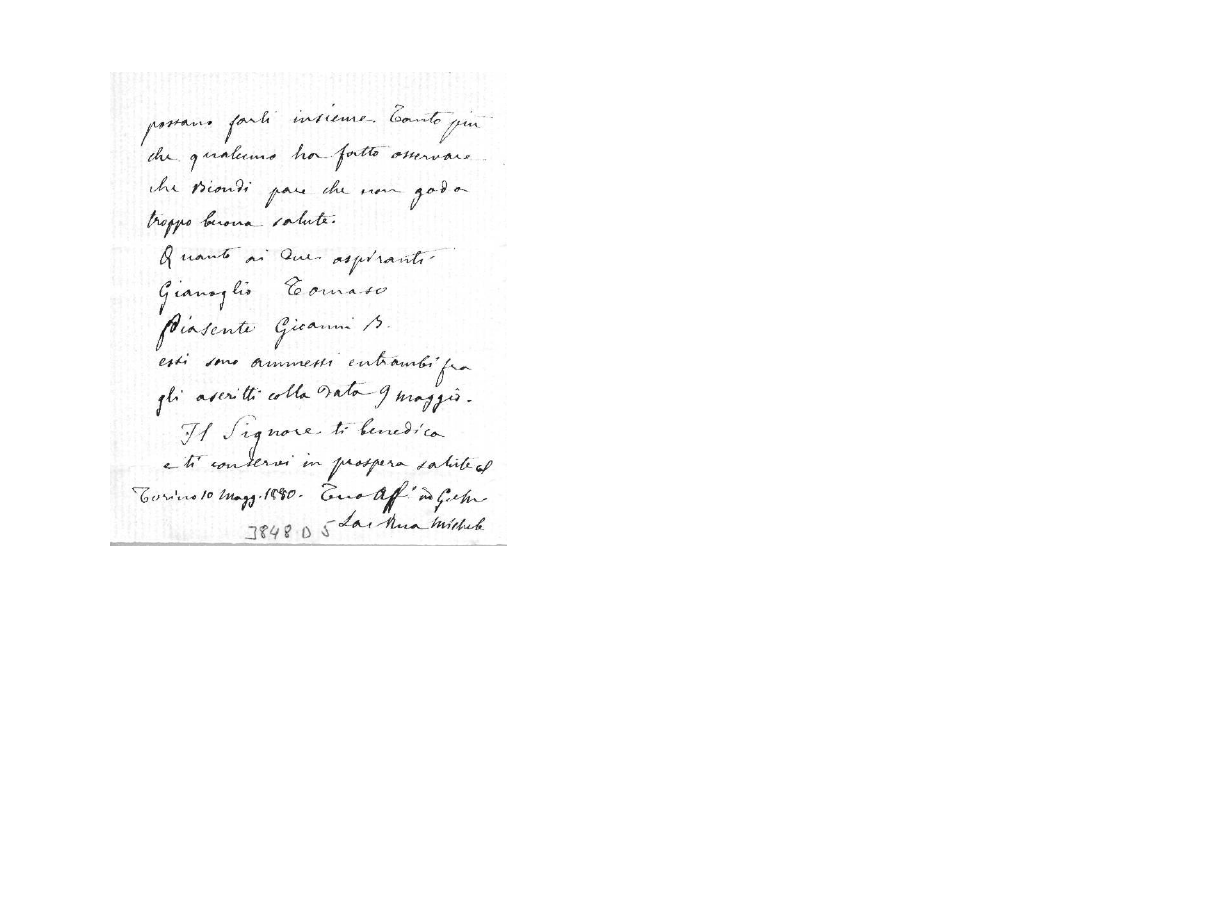 possano farli insieme. Tanto più
che qualcuno ha fatto osservare
che Biondi pare che non goda
troppo buona salute.
Quanto ai due aspiranti
Gianoglio Tomaso
Piasente Gioanni B.
essi sono ammessi entrambi fra
gli ascritti colla data 9 maggio.
Il Signore ti benedica
e ti conservi in prospera salute
Torino 10 Magg. 1880. Tuo Aff. in G. e M.
Sac Rua Michele
3848 D 5